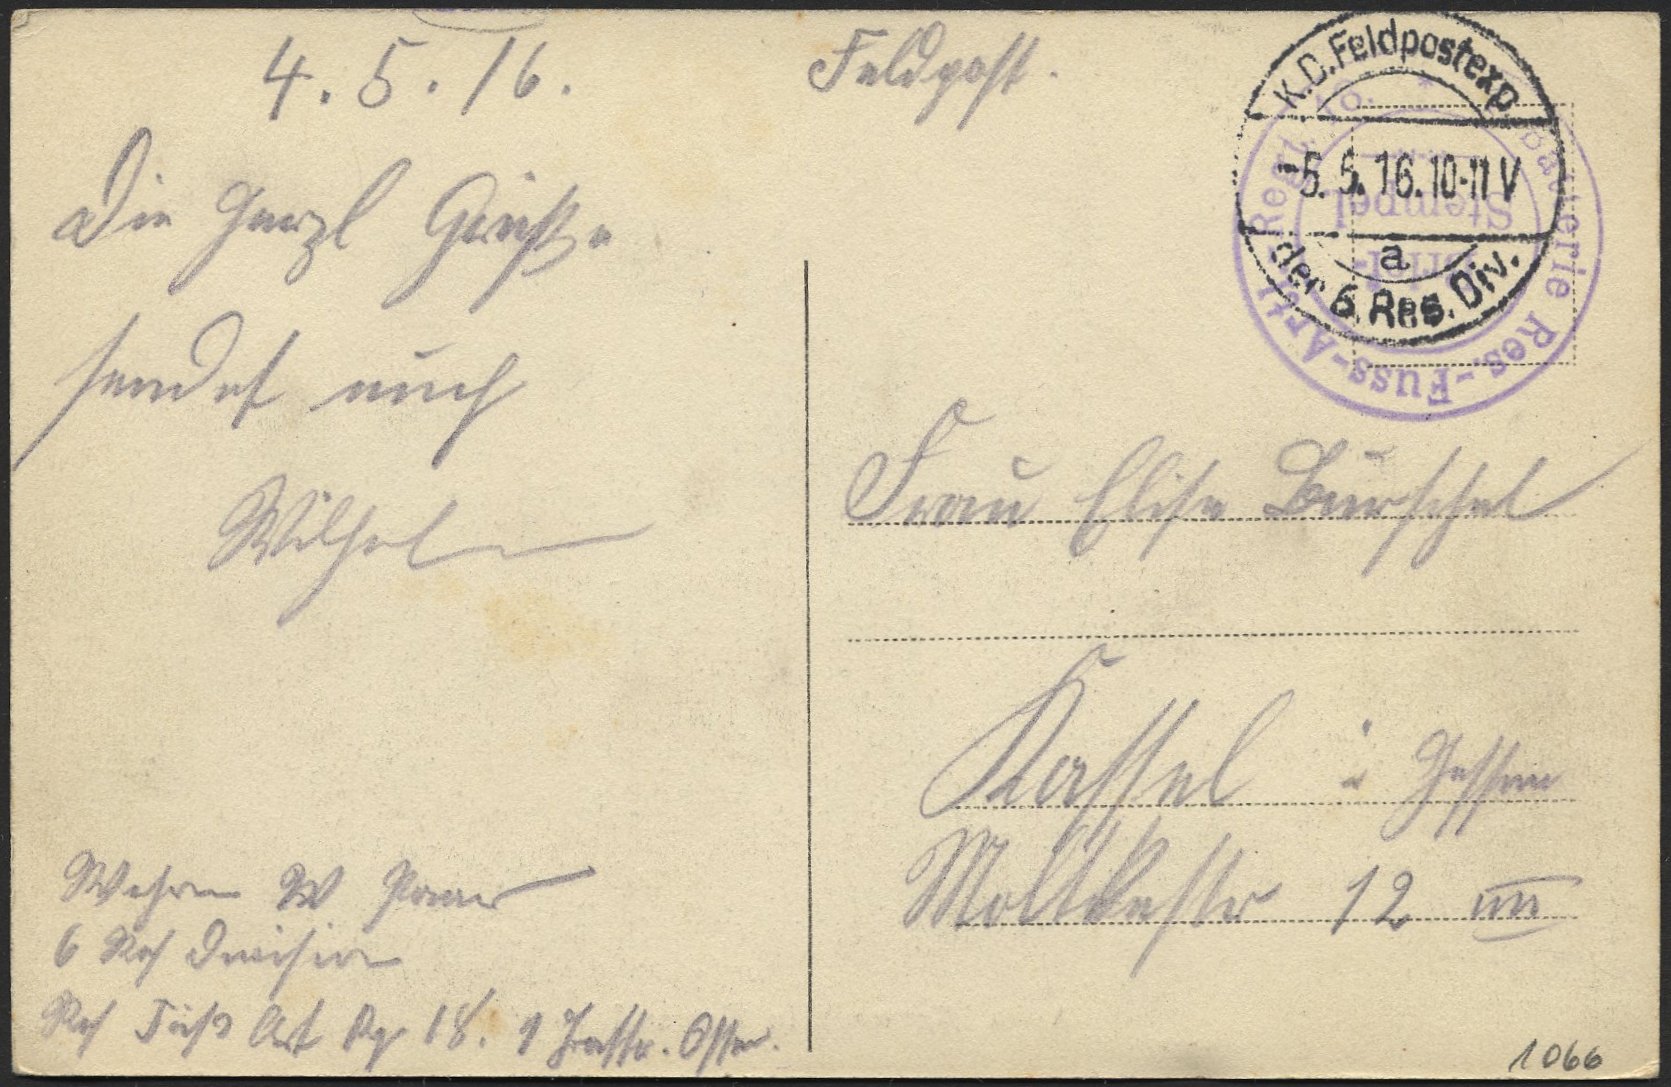 4.5.16.
Feldpost.
Die Herzl Grüße
sendet euch
Wilhelm
Wehrm W
6 Res Division
Res Fuß Art Rg 18. 1
K.D.Feldpostexp.
-5.5.16.10-11V
a
der 6.Res.Div.
batterie Res.-Fuss-Artl.-Regt. No.
Brief-
Stempel
Frau Elise Burschel
Kassel i Hessen
Moltkestr 12 III
1066